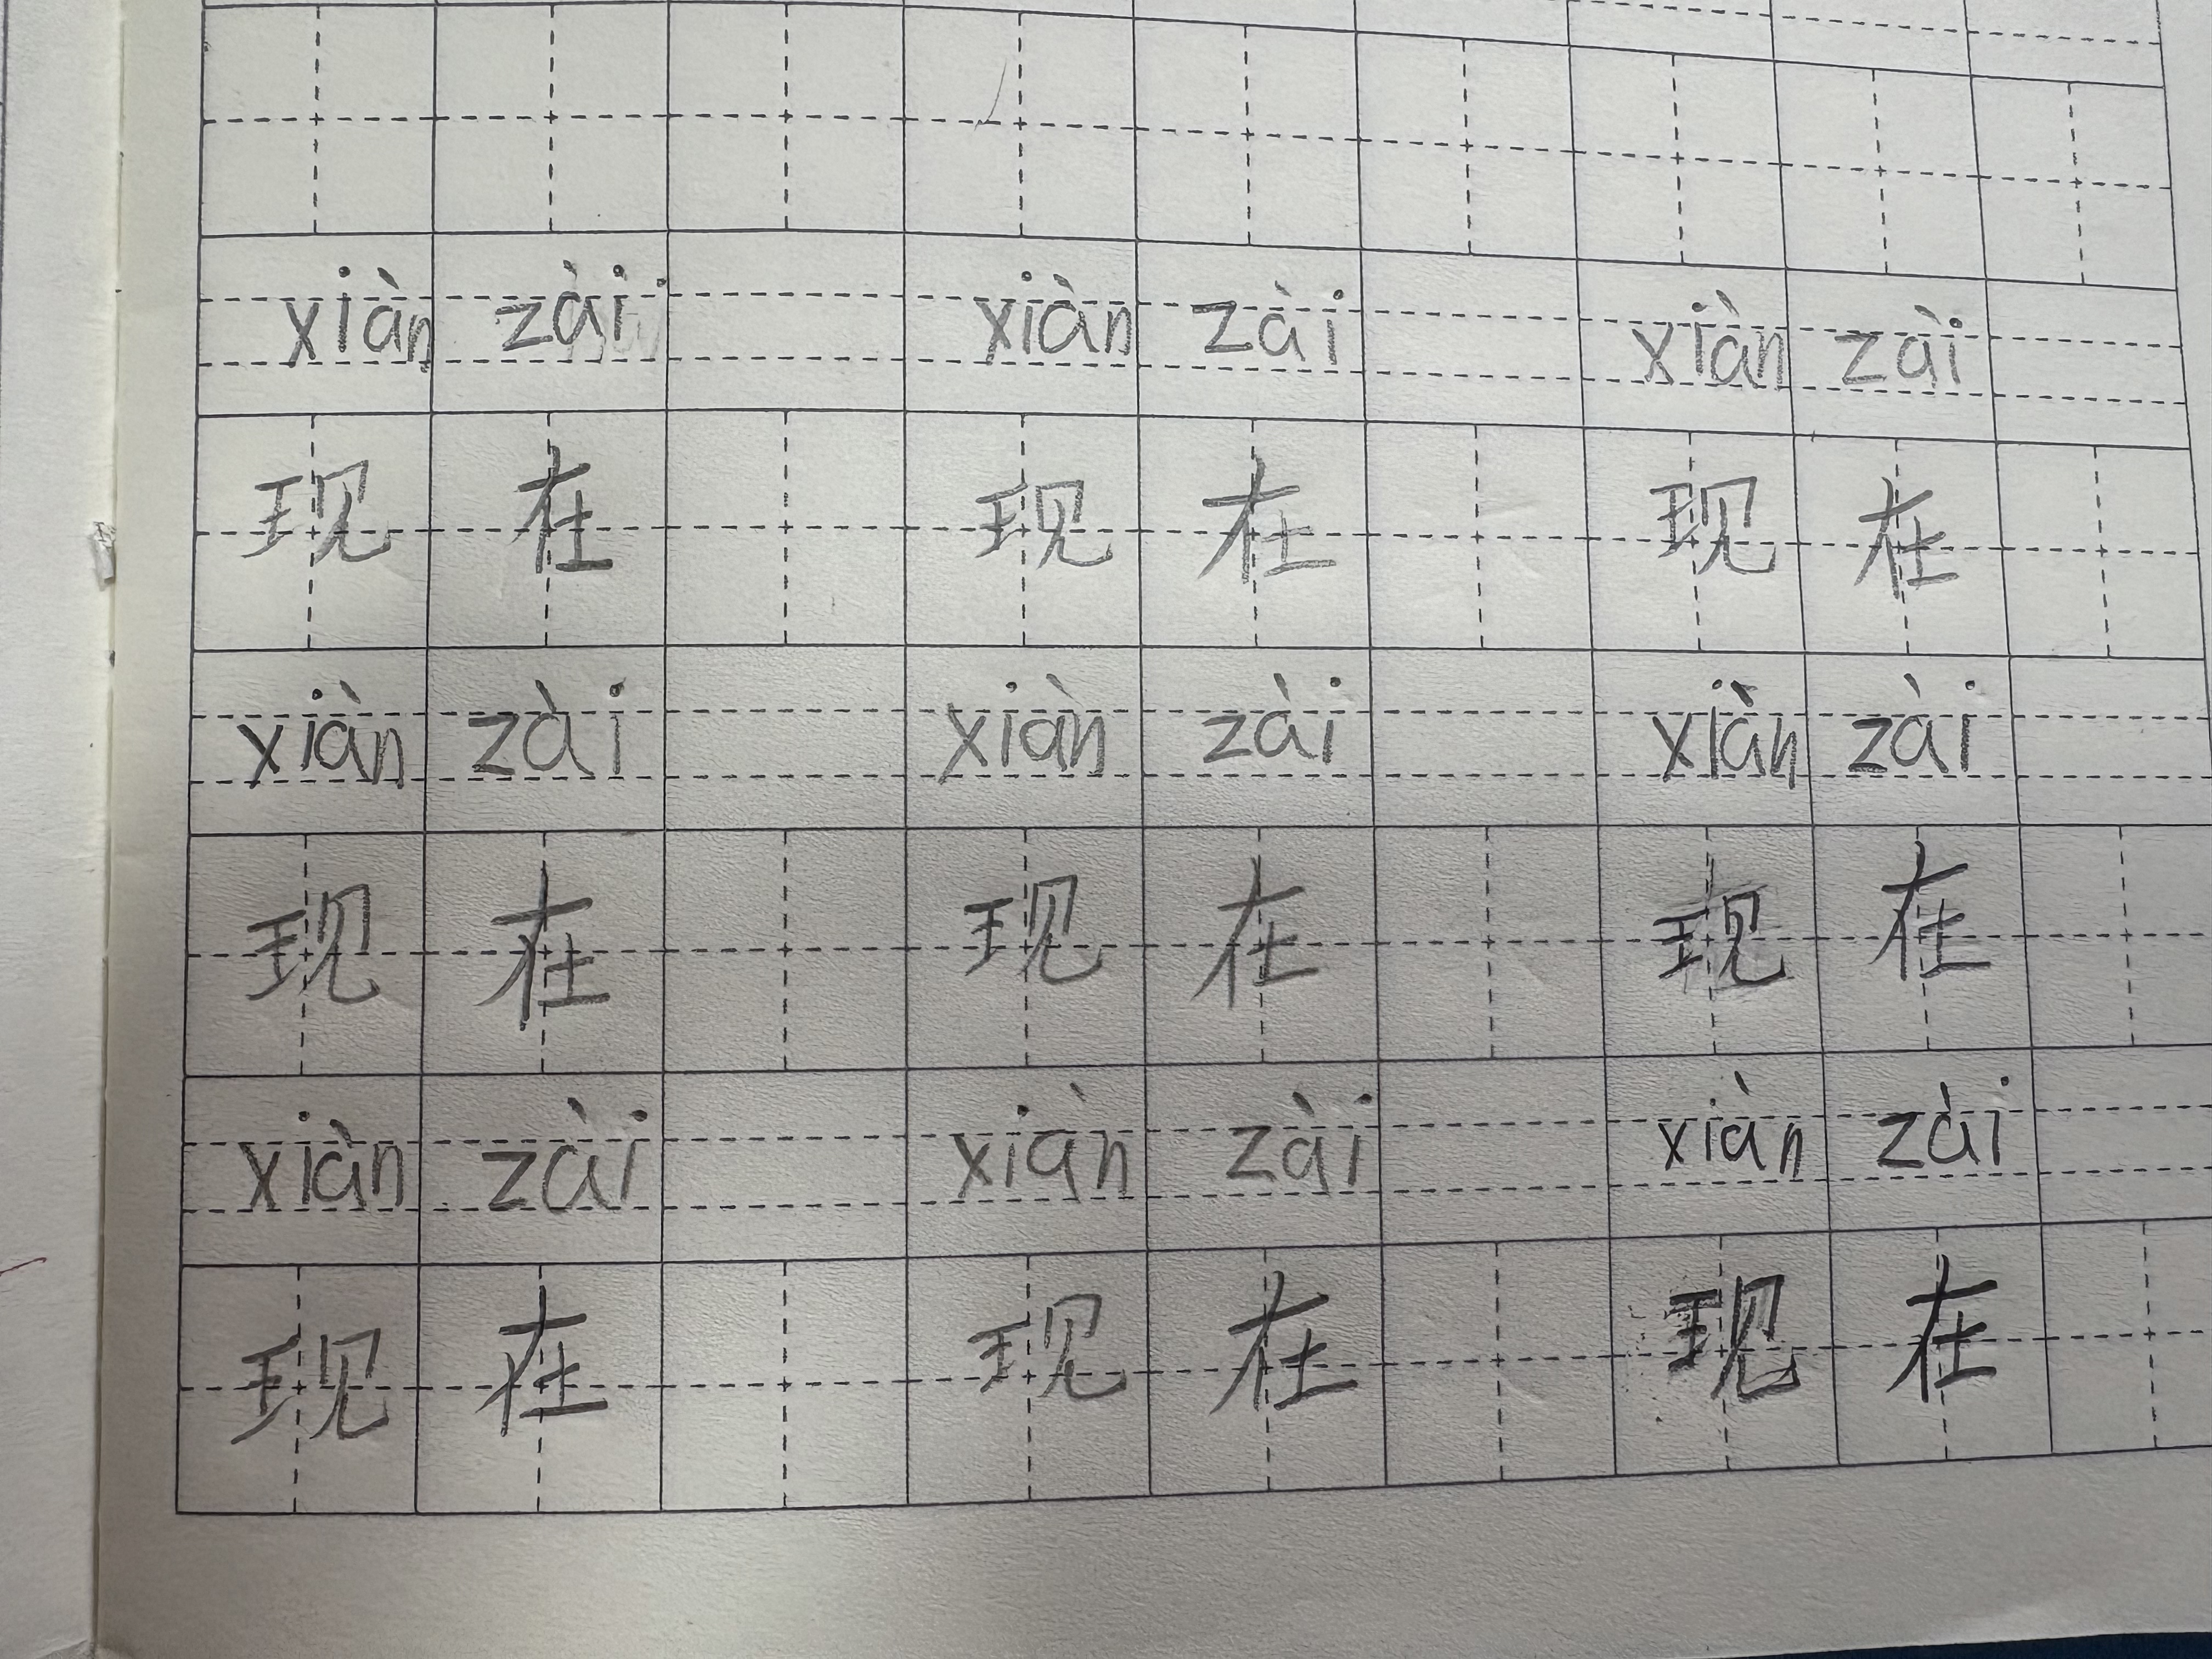 xiàn zài xiàn zài xiàn zài
现在 现在 现在
xiàn zài xiàn zài xiàn zài
现在 现在 现在
xiàn zài xiàn zài xiàn zài
现在 现在 现在